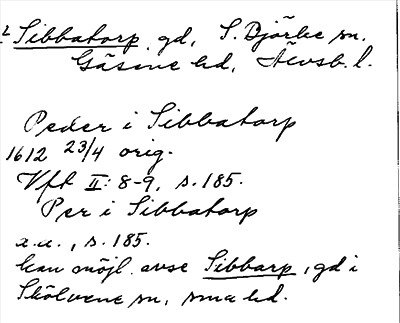 2 Sibbatorp gd, S. Björke sn.
Gäsene hd, Älvsb. l.
Peder i Sibbatorp
1612 23/4 orig.
Vft II: 8-9, s. 185.
Per i Sibbatorp
a.a., s. 185.
kan möjl. avse Sibbarp, gd i
Skölvene sn, sma hd.